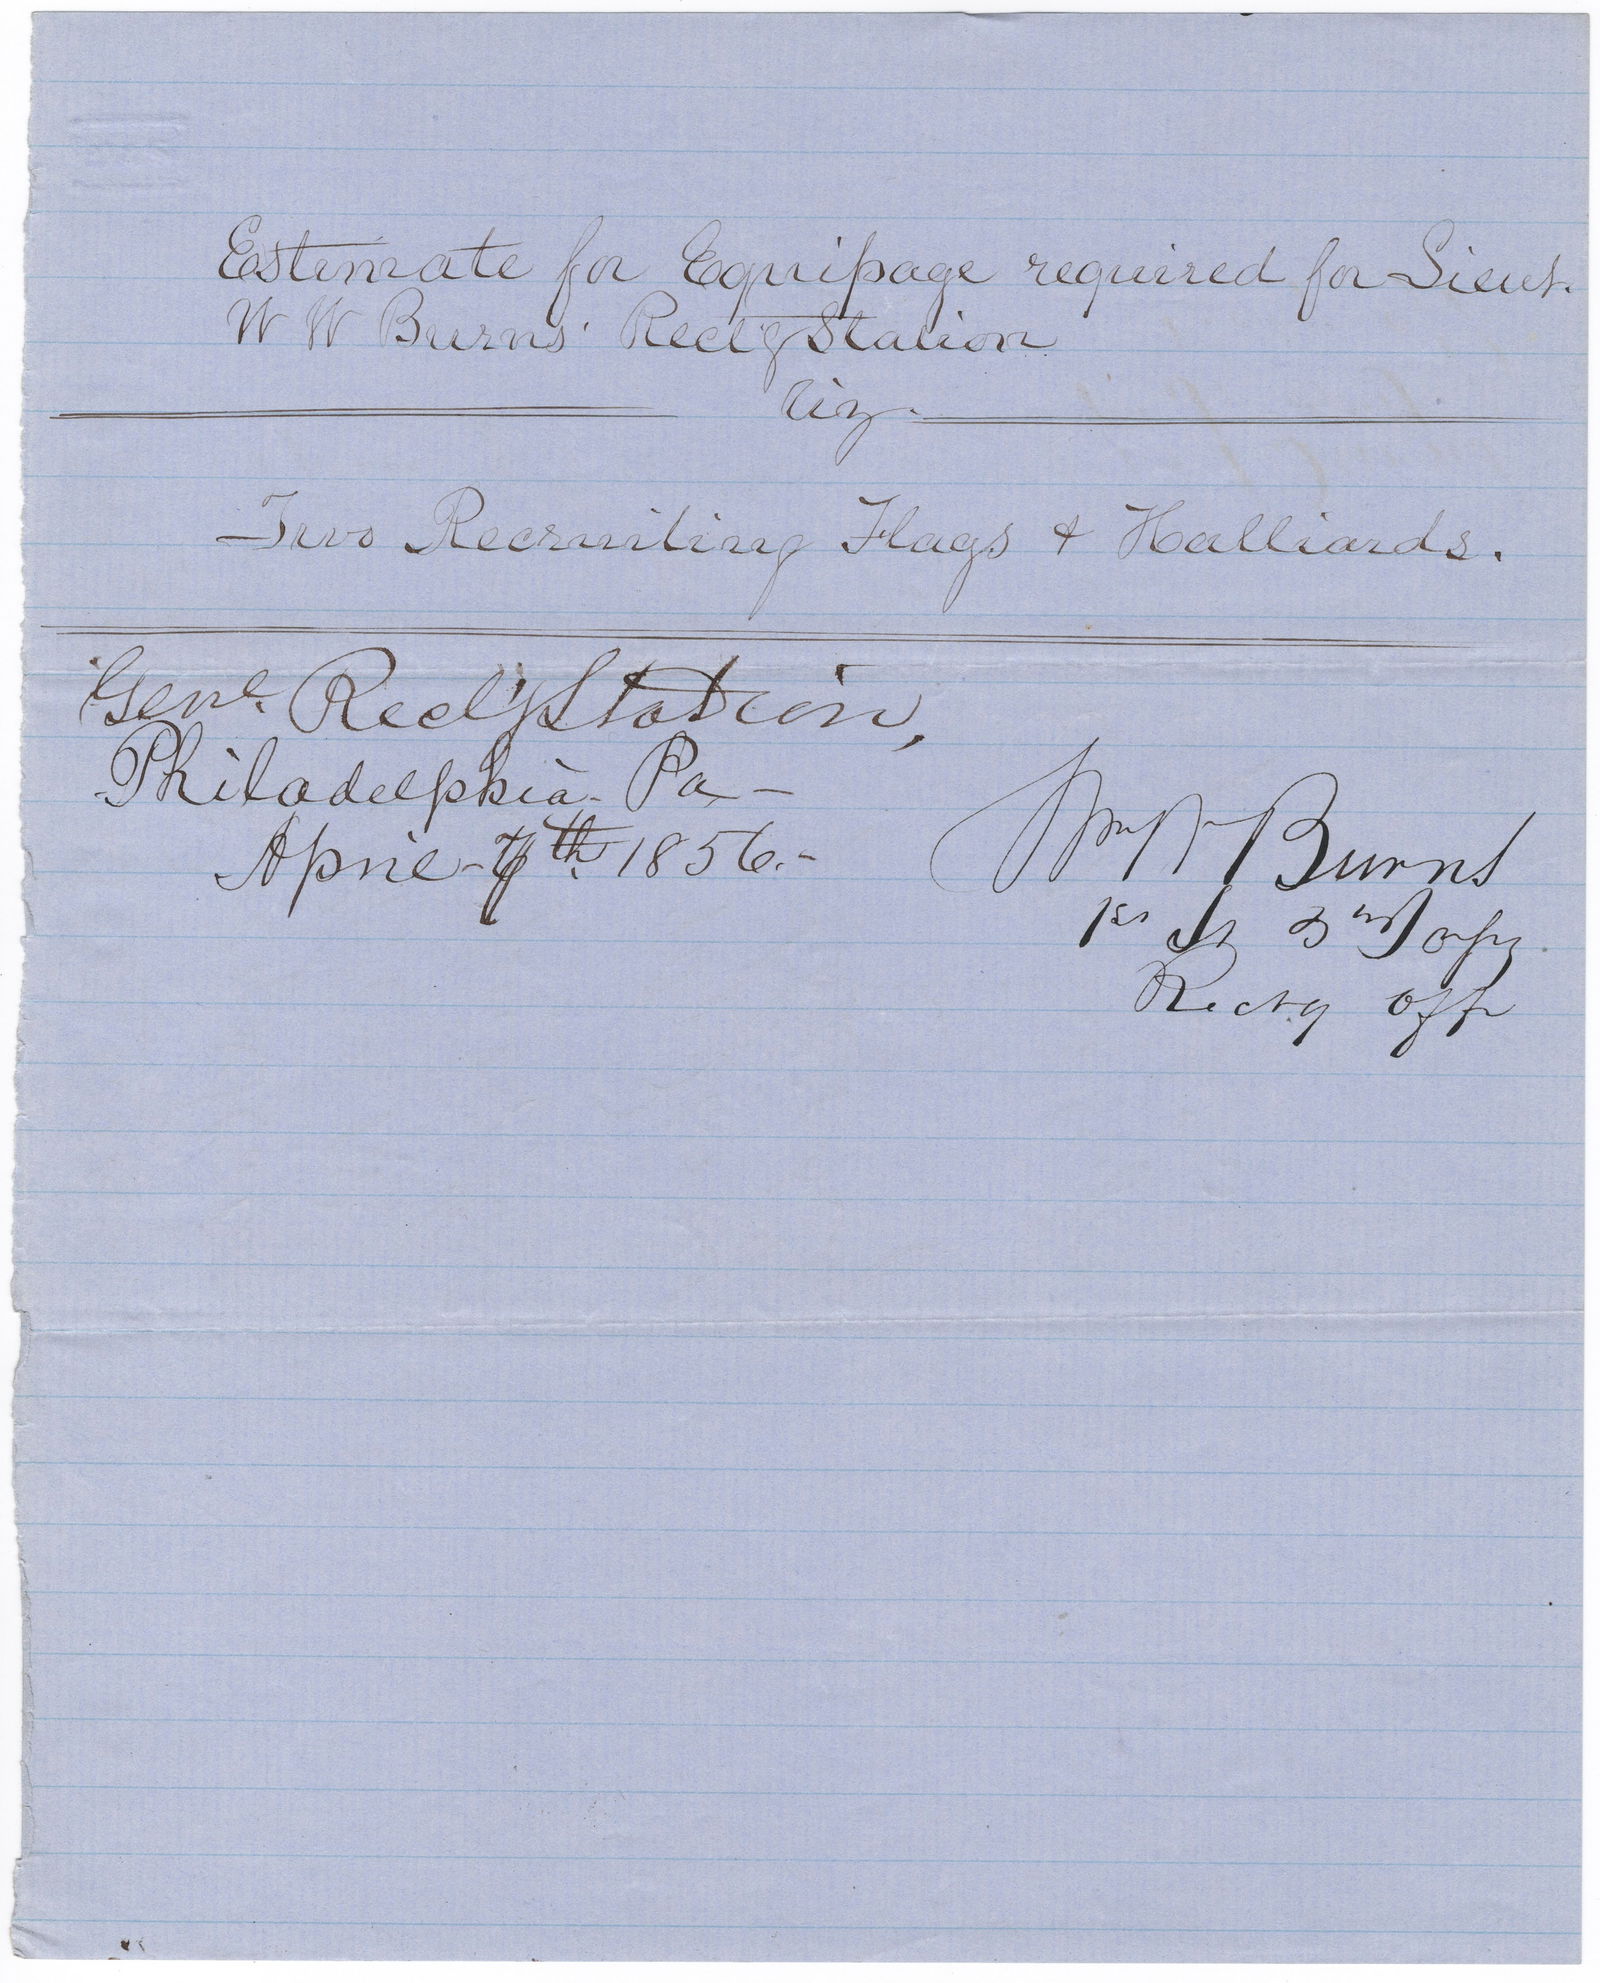 Estimate for Equipage required for Lieut.
W W Burns' Rectg Station
Viz.
Two Recruiting Flags & Halliards.
Genl. Rectg Station,
Philadelphia. Pa —
April - 7th. 1856. -
Wm W Burns
1st Lt 3rd Infy
Rectg Off